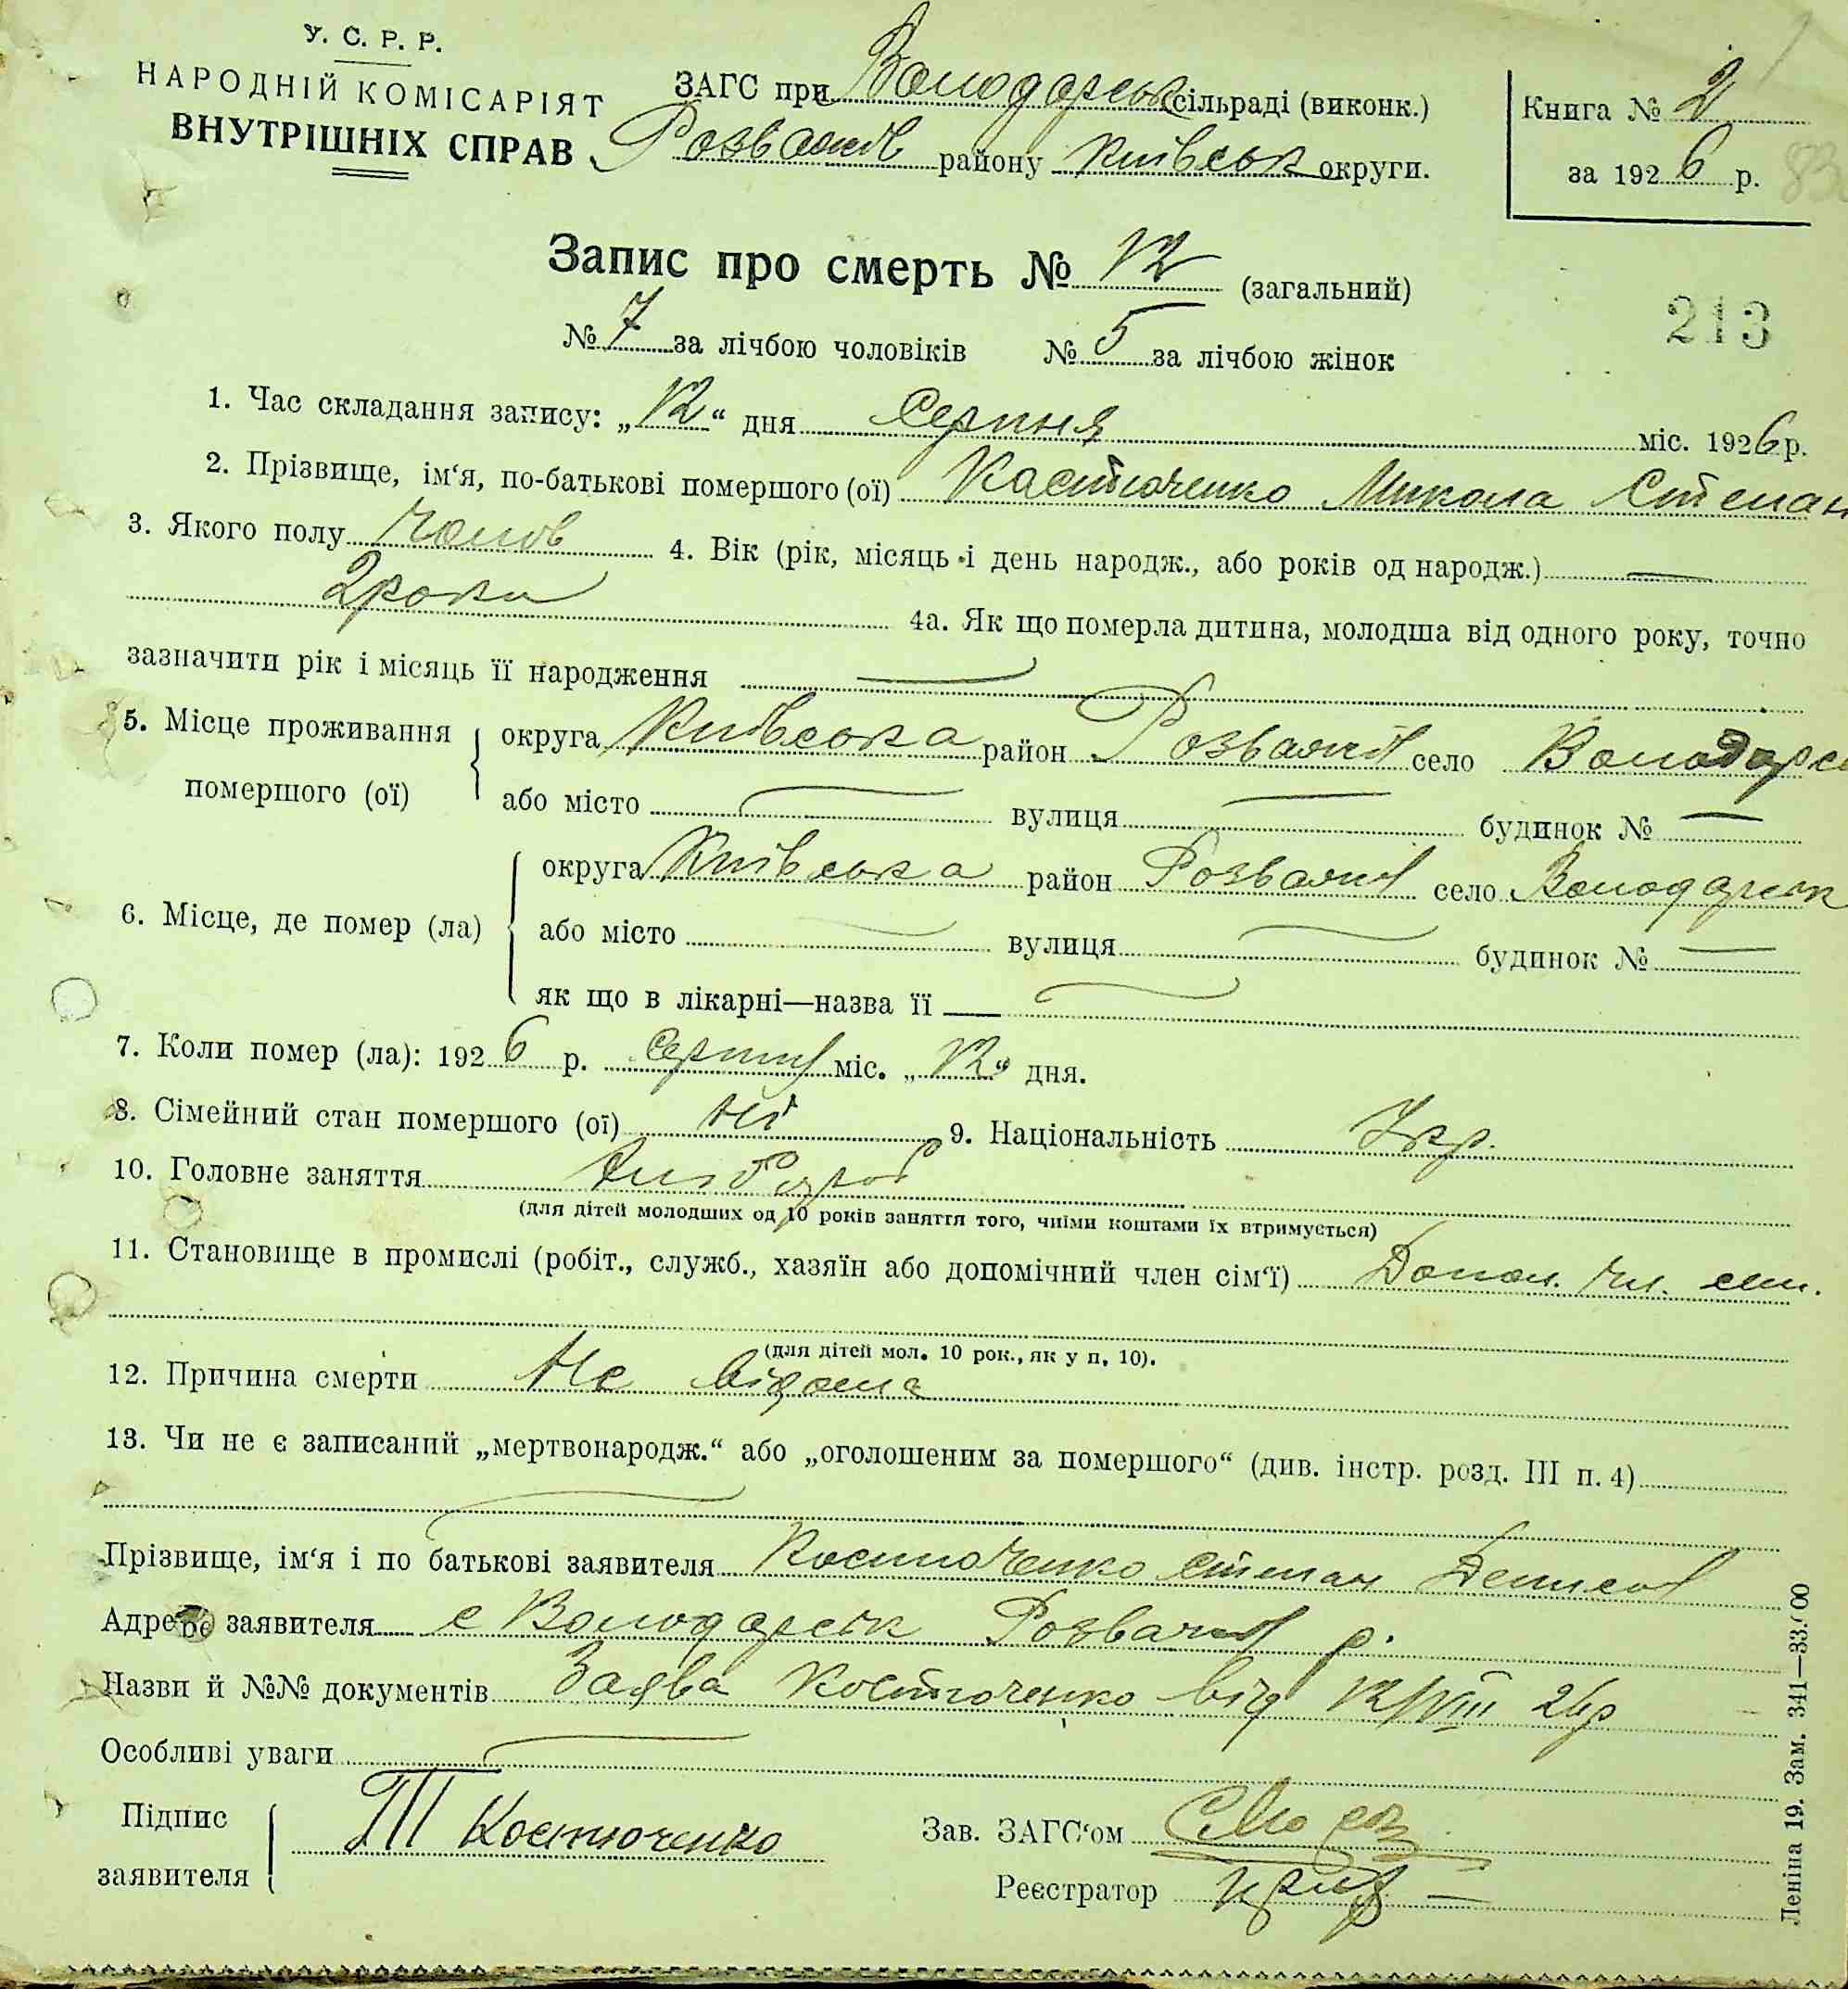 У. С. Р. Р.
НАРОДНІЙ КОМІСАРІЯТ
ВНУТРІШНІХ СПРАВ
ЗАГС при Володарськ сільраді (виконк.)
Розважів району Київськ округи.
Книга № 2
за 1926 р.
83
Запис про смерть № 12 (загальний)
213
№ 7 за лічбою чоловіків № 5 за лічбою жінок
1. Час складання запису: „12“ дня Серпня міс. 1926 р.
2. Прізвище, ім‘я, по-батькові помершого (ої) Костюченко Микола Степан
3. Якого полу Чолов 4. Вік (рік, місяць і день народж., або років од народж.) —
2 роки 4а. Як що померла дитина, молодша від одного року, точно
зазначити рік і місяць її народження —
5. Місце проживання помершого (ої) округа Київська район Розважів село Володарсь
або місто — вулиця — будинок № —
6. Місце, де помер (ла) округа Київська район Розважів село Володарськ
або місто — вулиця — будинок № —
як що в лікарні—назва її —
7. Коли помер (ла): 1926 р. Серпня міс. „12“ дня.
8. Сімейний стан помершого (ої) Ні 9. Національність Укр.
10. Головне заняття Хлібороб
(для дітей молодших од 10 років заняття того, чиїми коштами їх втримується)
11. Становище в промислі (робіт., служб., хазяїн або допомічний член сім‘ї) Допом. чл. сім.
(для дітей мол. 10 рок., як у п. 10).
12. Причина смерти Не відома
13. Чи не є записаний „мертвонародж.“ або „оголошеним за помершого“ (див. інстр. розд. III п. 4)
—
Прізвище, ім‘я і по батькові заявителя Костюченко Степан Денисов
Адреса заявителя с Володарськ Розважів р.
Назви й №№ документів Заява Костюченко від 12/VIII 26р
Особливі уваги —
Підпис заявителя Костюченко
Зав. ЗАГС‘ом
Реєстратор
Леніна 19. Зам. 341—33.000